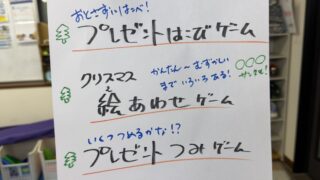 おとさずいはこべ!
プレゼントはこびゲーム
クリスマス
かんたん〜むずかしい
までいろいろある!
絵あわせゲーム
え
いくつつめるかな!?
プレゼントつみゲーム